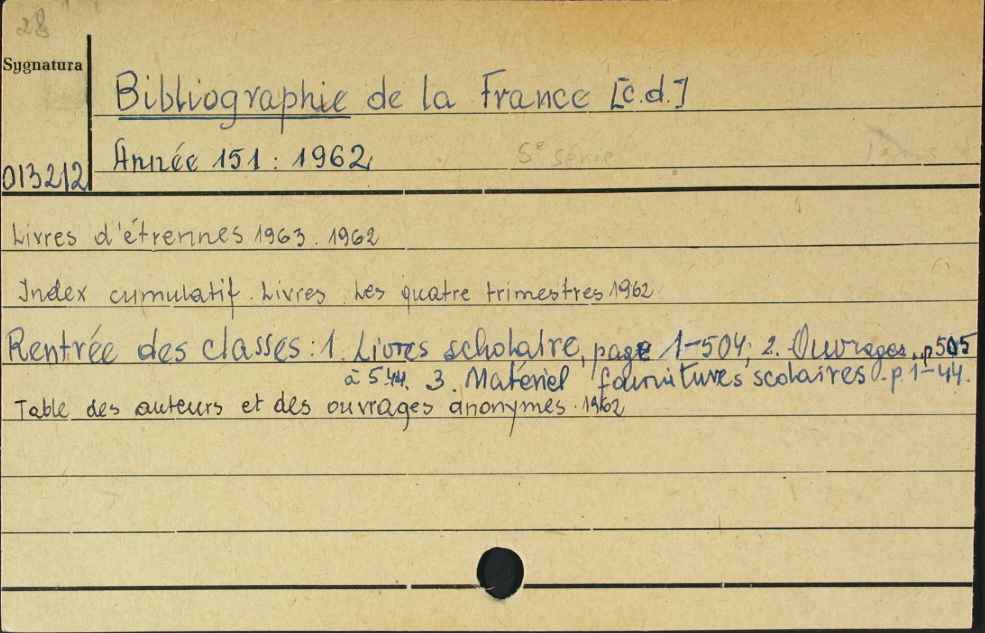 28
Sygnatura
Bibliographie de la France [c.d.]
Année 151 : 1962
5e série
013212
Livres d'étrennes 1963. 1962
Index cumulatif. Livres. Les quatre trimestres 1962
Rentrée des classes: 1. Livres scholaire, page 1-504; 2. Ouvrages, p 505
à 544. 3. Matériel fournitures scolaires. p. 1-44.
Table des auteurs et des ouvrages anonymes. 1962